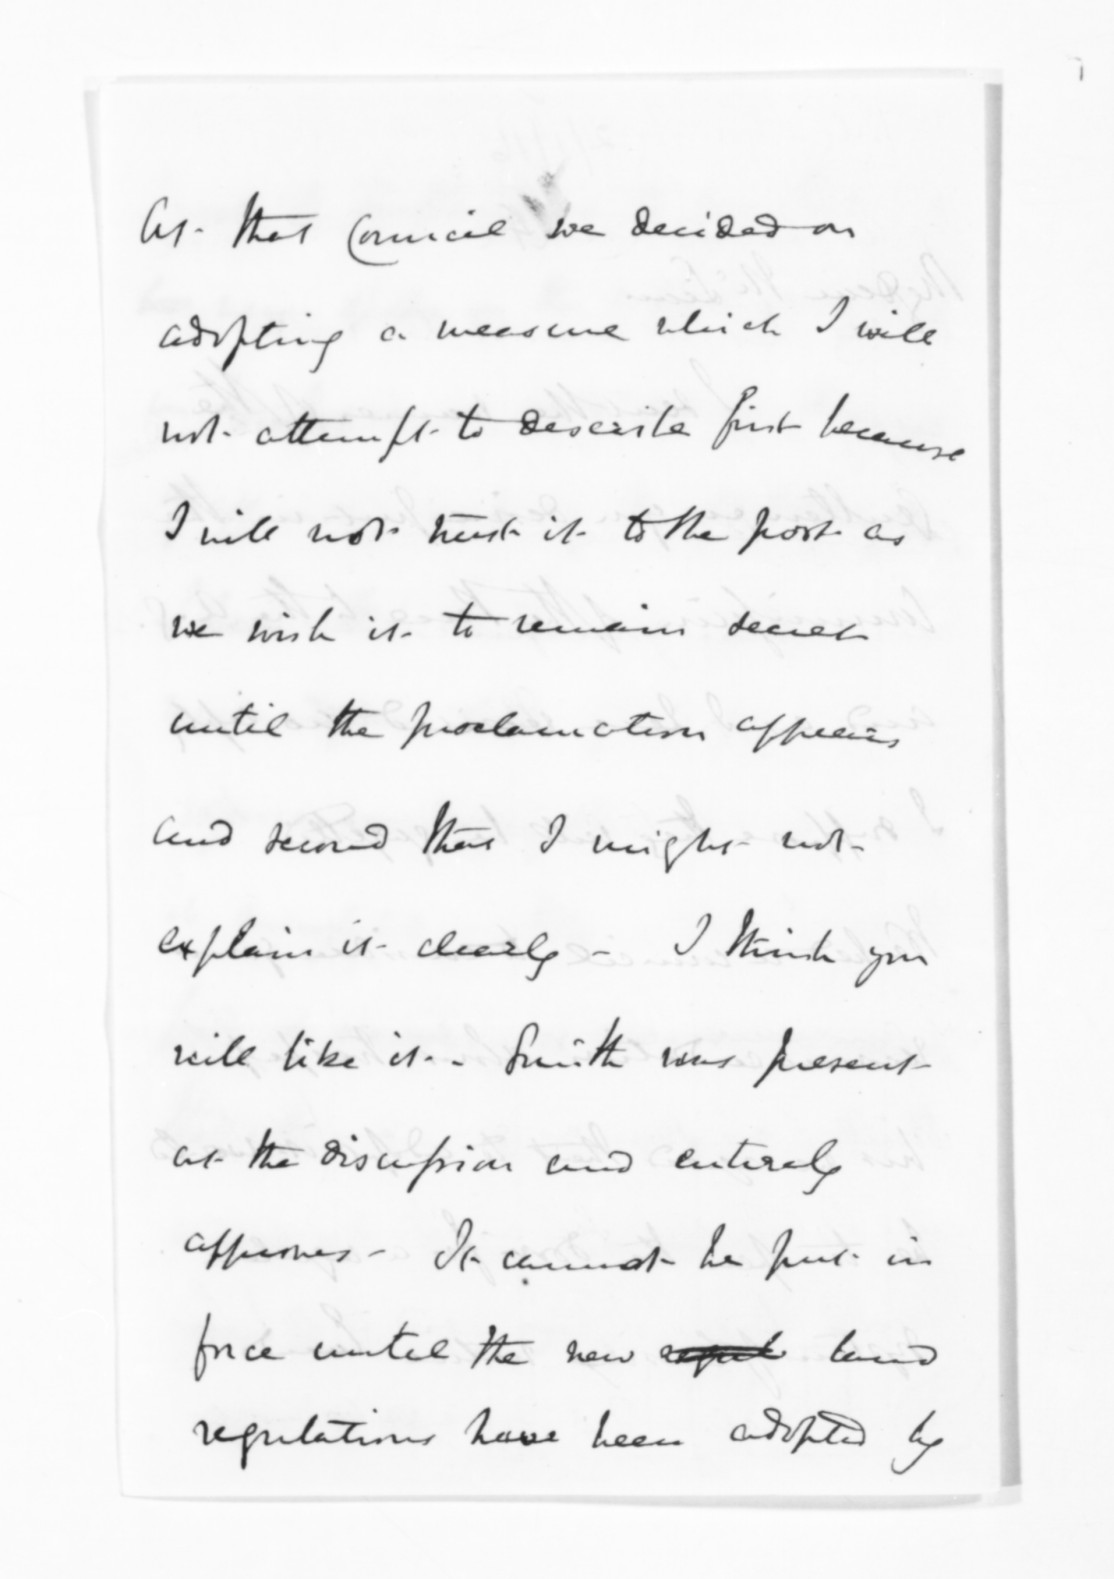 At that Council we decided on
adopting a measure which I will
not attempt to describe first because
I will not trust it to the post as
we wish it to remain secret
until the proclamation appears
and second that I might not
explain it clearly - I think you
will like it - Smith was present
at the discussion and entirely
approves - It cannot be put in
force until the new land
regulations have been adopted by